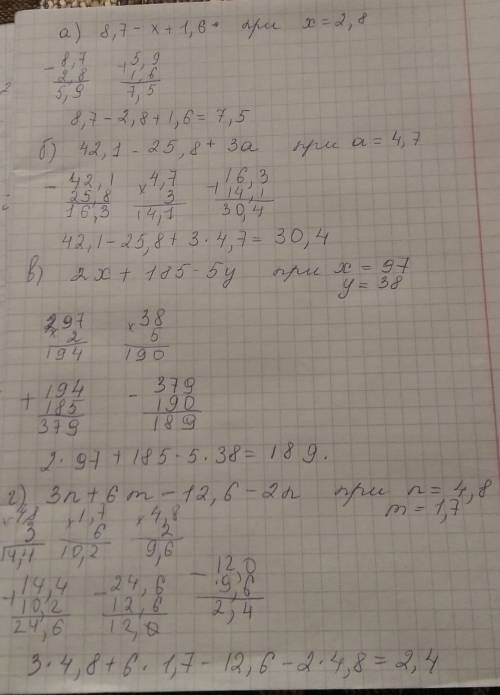 а) 8,7 - x + 1,6 при x = 2,8
- 8,7 + 5,9
2,8 1,6
5,9 7,5
8,7 - 2,8 + 1,6 = 7,5
б) 42,1 - 25,8 + 3a при a = 4,7
- 42,1 × 4,7 + 16,3
25,8 3 14,1
16,3 14,1 30,4
42,1 - 25,8 + 3 · 4,7 = 30,4
в) 2x + 185 - 5y при x = 97
y = 38
× 97 × 38
2 5
194 190
+ 194 - 379
185 190
379 189
2 · 97 + 185 · 5 · 38 = 189.
г) 3n + 6m - 12,6 - 2n при n = 4,8
m = 1,7
× 4,8 × 1,7 × 4,8
3 6 2
14,4 10,2 9,6
+ 14,4 - 24,6 - 12,0
10,2 12,6 9,6
24,6 12,0 2,4
3 · 4,8 + 6 · 1,7 - 12,6 - 2 · 4,8 = 2,4